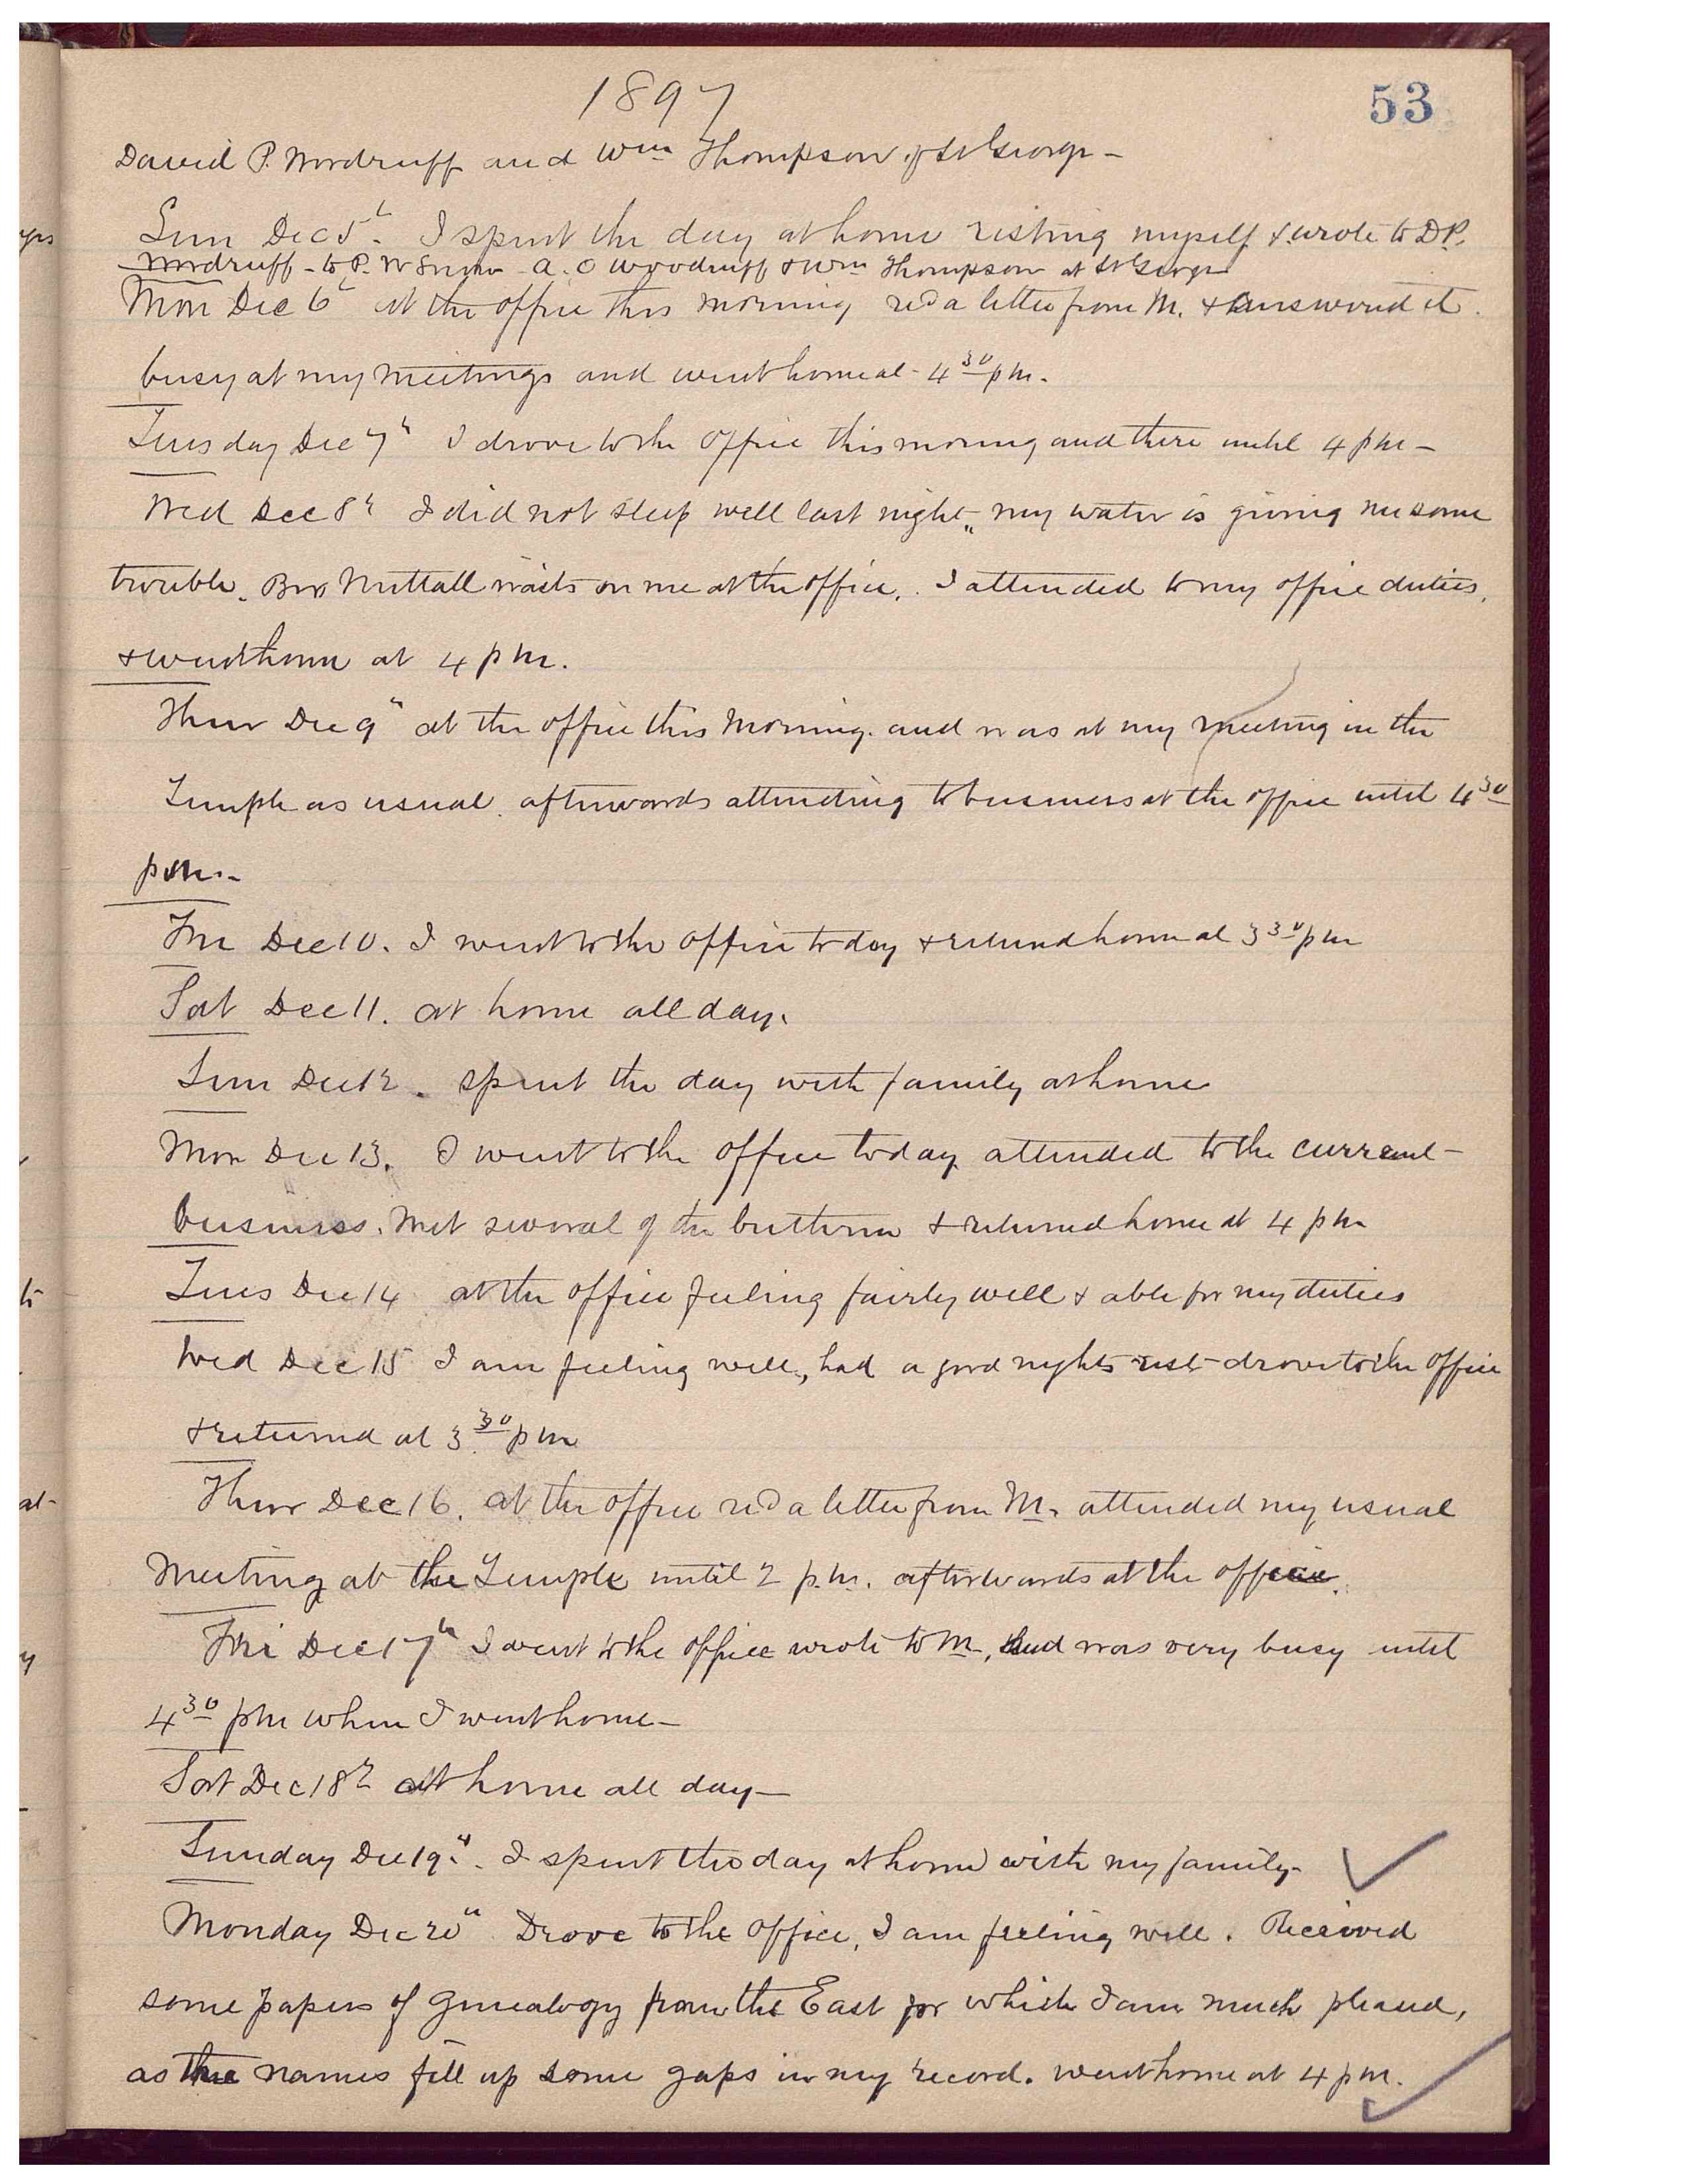 1897
53
David P. Woodruff and Wm Thompson of St George -
Sun Dec 5th. I spent the day at home resting myself & wrote to D P.
Woodruff - to P. W Snow - A. O Woodruff & Wm Thompson at St George
Mon Dec 6th at the office this morning recd a letter from M. & answered it.
busy at my meetings and went home at 4 30 pm.
Tuesday Dec 7th I drove to the office this morning and there until 4 pm -
Wed Dec 8th I did not sleep well last night, my water is giving me some
trouble. Bro Nuttall waits on me at the office. I attended to my office duties,
& went home at 4 pm.
Thur Dec 9th at the office this Morning. and was at my meeting in the
Temple as usual. afterwards attending to business at the office until 4 30
pm.-
Fri Dec 10. I went to the office to day & returnd home at 3 30 pm
Sat Dec 11. at home all day.
Sun Dec 12. spent the day with family at home
Mon Dec 13. I went to the office today attended to the current -
business. Met several of the brethren & returned home at 4 pm
Tues Dec 14 at the office feeling fairly well & able for my duties
Wed Dec 15 I am feeling well, had a good nights rest - drove to the office
& returned at 3 30 pm
Thur Dec 16. at the office recd a letter from M. attended my usual
Meeting at the Temple until 2 p.m. afterwards at the office.
Fri Dec 17th I went to the office wrote to M., and was very busy until
4 30 pm when I went home -
Sat Dec 18th at home all day -
Sunday Dec 19th. I spent the day at home with my family -
Monday Dec 20th Drove to the office, I am feeling well. Received
some papers of genealogy from the East for which I am much pleased,
as the names fill up some gaps in my record. went home at 4 pm.